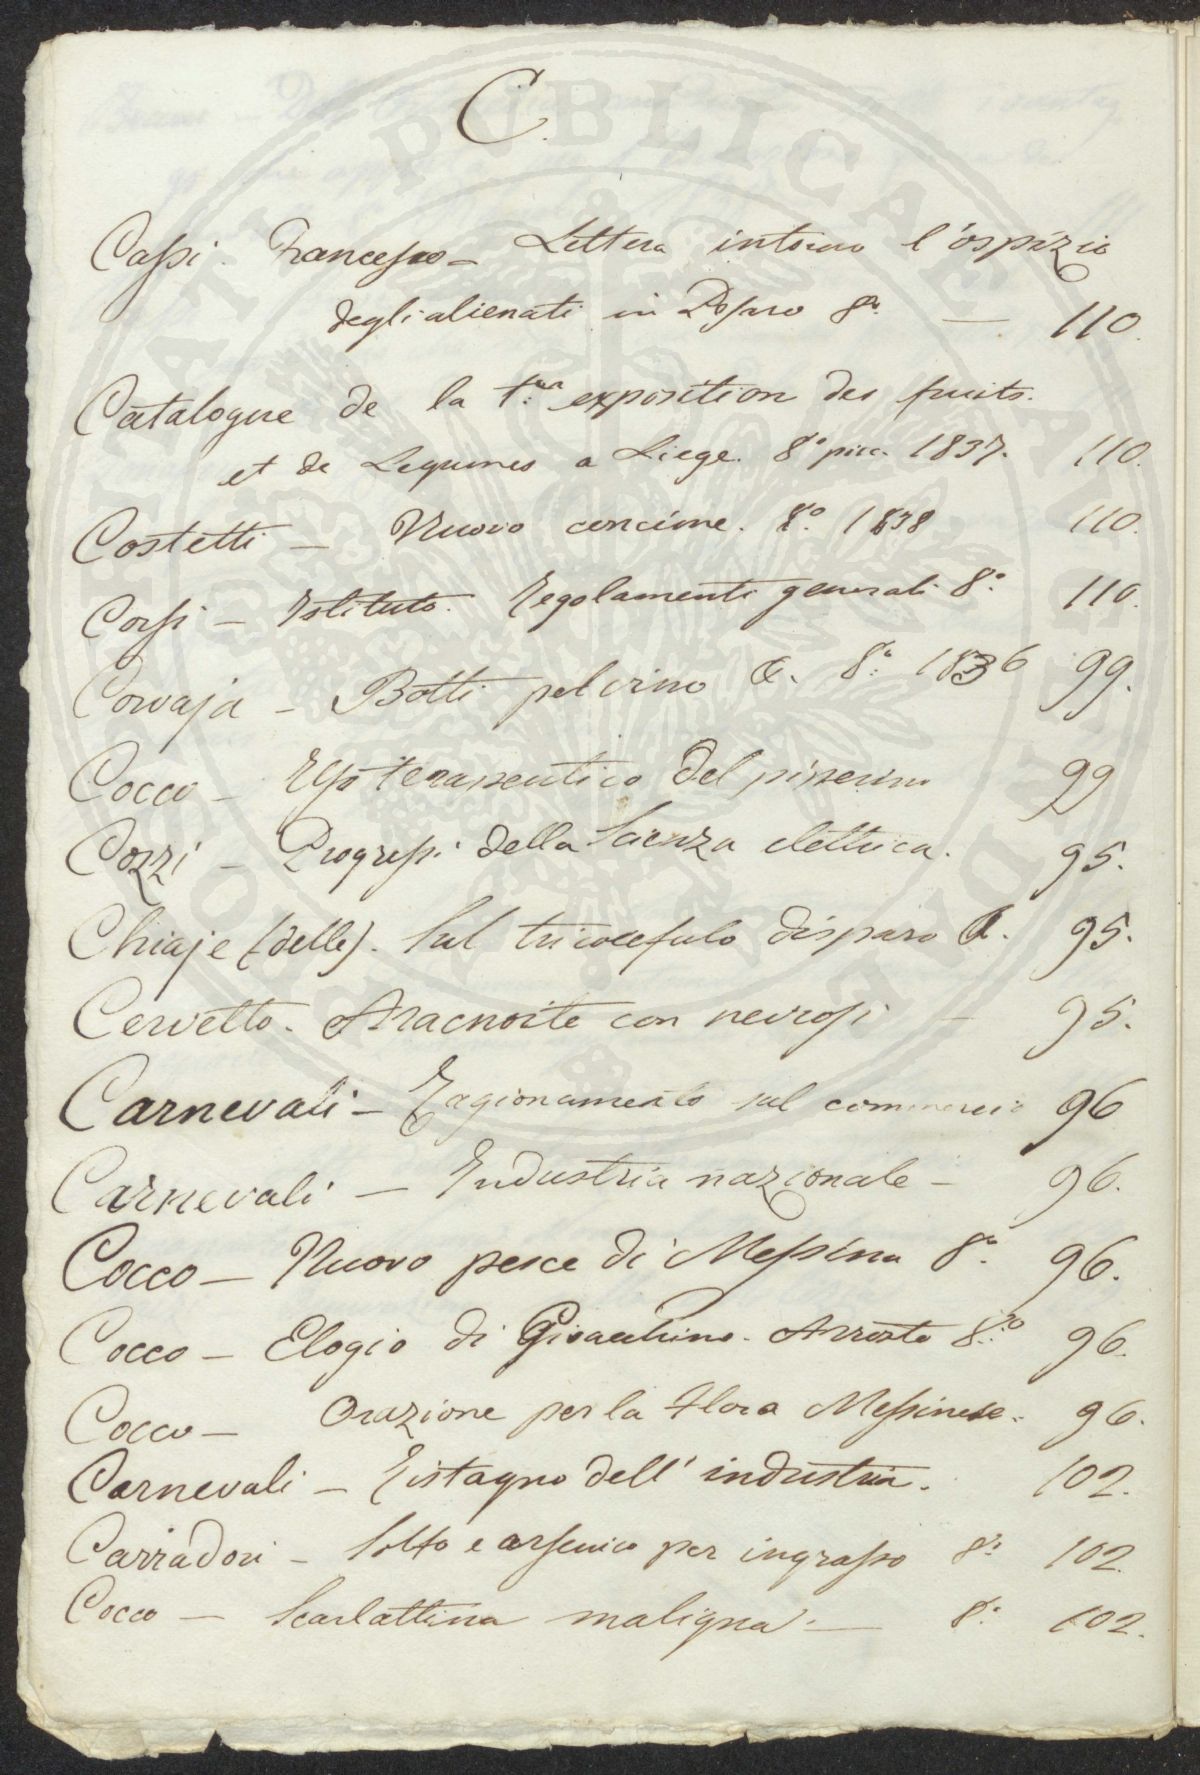 C.
Cassi. Francesco – Lettera intorno l'ospizio
degli alienati in Pesaro 8.° — 110.
Catalogue de la 1.ere exposition des fruits.
et de Legumes a Liege. 8.° picc. 1837. 110.
Costetti – Nuovo concime. 8.° 1838 110.
Corsi – Istituto. Regolamenti generali 8.° 110.
Corvaja – Botti pel vino &. 8.° 1836 99.
Cocco – Uso terapeutico del 99
Cozzi – Progressi della Scienza elettrica. 95.
Chiaje (delle). Sul tricocefalo disparo &. 95.
Cervetto. Aracnoite con nevrosi – 95.
Carnevali – Ragionamento sul commercio 96
Carnevali – Industria nazionale – 96.
Cocco – Nuovo pesce di Messina 8.° 96.
Cocco – Elogio di Gioacchino. Arrosto 8.° 96.
Cocco – Orazione per la Flora Messinese. 96.
Carnevali – Ristagno dell' industria. 102.
Carradori – Solfo e arsenico per ingrasso 8.° 102.
Cocco – Scarlattina maligna. — 8.° 102.